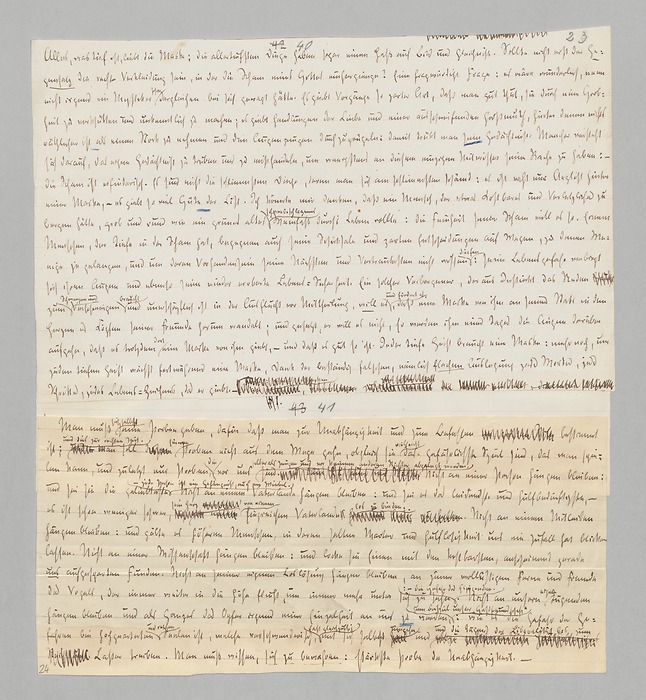 40
23
Alles, was tief ist, liebt die Maske; die allertiefsten Dinge haben sogar einen Haß auf Bild und Gleichniß. Sollte nicht erst der Ge-
gensatz die rechte Verkleidung sein, in der die Scham eines Gottes einhergienge? Eine fragwürdige Frage: es wäre wunderlich, wenn
nicht irgend ein Mystiker schon dergleichen bei sich gewagt hätte. Es giebt Vorgänge so zarter Art, daß man gut thut, sie durch eine Grob-
heit zu verschütten und unkenntlich zu machen; es giebt Handlungen der Liebe und einer ausschweifenden Großmuth, hinter denen nichts
räthlicher ist, als einen Stock zu nehmen und den Augenzeugen durchzuprügeln: damit trübt man sein Gedächtniß. Mancher versteht
sich darauf, das eigne Gedächtniß zu trüben und zu mißhandeln, um wenigstens an diesem einzigen Mitwisser seine Rache zu haben: —
die Scham ist erfinderisch. Es sind nicht die schlimmsten Dinge, deren man sich am schlimmsten schämt: es ist nicht nur Arglist hinter
einer Maske, — es giebt so viel Güte in der List. Ich könnte mir denken, daß ein Mensch, der etwas Kostbares und Verletzliches zu
bergen hätte, grob und rund wie ein grünes altes schwerbeschlagenes Weinfaß durch's Leben rollte: die Feinheit seiner Scham will es so. Einem
Menschen, der Tiefe in der Scham hat, begegnen auch seine Schicksale und zarten Entscheidungen auf Wegen, zu denen We-
nige je gelangen, und um deren Vorhandensein seine Nächsten und Vertrautesten nicht wissen dürfen: seine Lebensgefahr verbirgt
sich ihren Augen und ebenso seine wieder eroberte Lebens-Sicherheit. Ein solcher Verborgener, der aus Instinkt das Reden
zum Schweigen und Verschweigen braucht und unerschöpflich ist in der Ausflucht vor Mittheilung, will es und fördert es, daß eine Maske von ihm an seiner Statt in den
Herzen und Köpfen seiner Freunde herum wandelt; und gesetzt, er will es nicht, so werden ihm eines Tages die Augen darüber
aufgehen, daß es trotzdem dort eine Maske von ihm giebt, — und daß es gut so ist. Jeder tiefe Geist braucht eine Maske: mehr noch, um
jeden tiefen Geist wächst fortwährend eine Maske, Dank der beständig falschen, nämlich flachen Auslegung jedes Wortes, jedes
Schrittes, jedes Lebens-Zeichens, das er giebt. —
41
Man muß sich selbst seine Proben geben, dafür daß man zur Unabhängigkeit und zum Befehlen bestimmt
ist; und dies zur rechten Zeit. Man soll seinen Proben nicht aus dem Wege gehn, obgleich sie vielleicht das gefährlichste Spiel sind, das man spie-
len kann, und zuletzt nur Proben, die vor uns selber als Zeugen und vor keinem anderen Richter abgelegt werden. Nicht an einer Person hängen bleiben:
und sei sie die geliebteste, — jede Person ist ein Gefängniß, auch ein Winkel. Nicht an einem Vaterlande hängen bleiben: und sei es das leidendste und hülfbedürftigste, —
es ist schon weniger schwer, sein Herz von einem siegreichen Vaterlande los zu binden. Nicht an einem Mitleiden
hängen bleiben: und gälte es höheren Menschen, in deren seltne Marter und Hülflosigkeit uns ein Zufall hat blicken
lassen. Nicht an einer Wissenschaft hängen bleiben: und locke sie Einen mit den kostbarsten, anscheinend gerade
uns aufgesparten Funden. Nicht an seiner eignen Loslösung hängen bleiben, an jener wollüstigen Ferne und Fremde
des Vogels, der immer weiter in die Höhe flieht, um immer mehr unter sich zu sehn: — die Gefahr des Fliegenden. Nicht an unseren eignen Tugenden
hängen bleiben und als Ganzes das Opfer irgend einer Einzelheit an uns werden, zum Beispiel unsrer „Gastfreundschaft“: wie es die Gefahr der Ge-
fahren bei hochgearteten und reichen Seelen ist, welche verschwenderisch, fast gleichgültig mit sich selbst umgehn und die Tugend der Liberalität bis zum
Laster treiben. Man muß wissen, sich zu bewahren: stärkste Probe der Unabhängigkeit. —
24